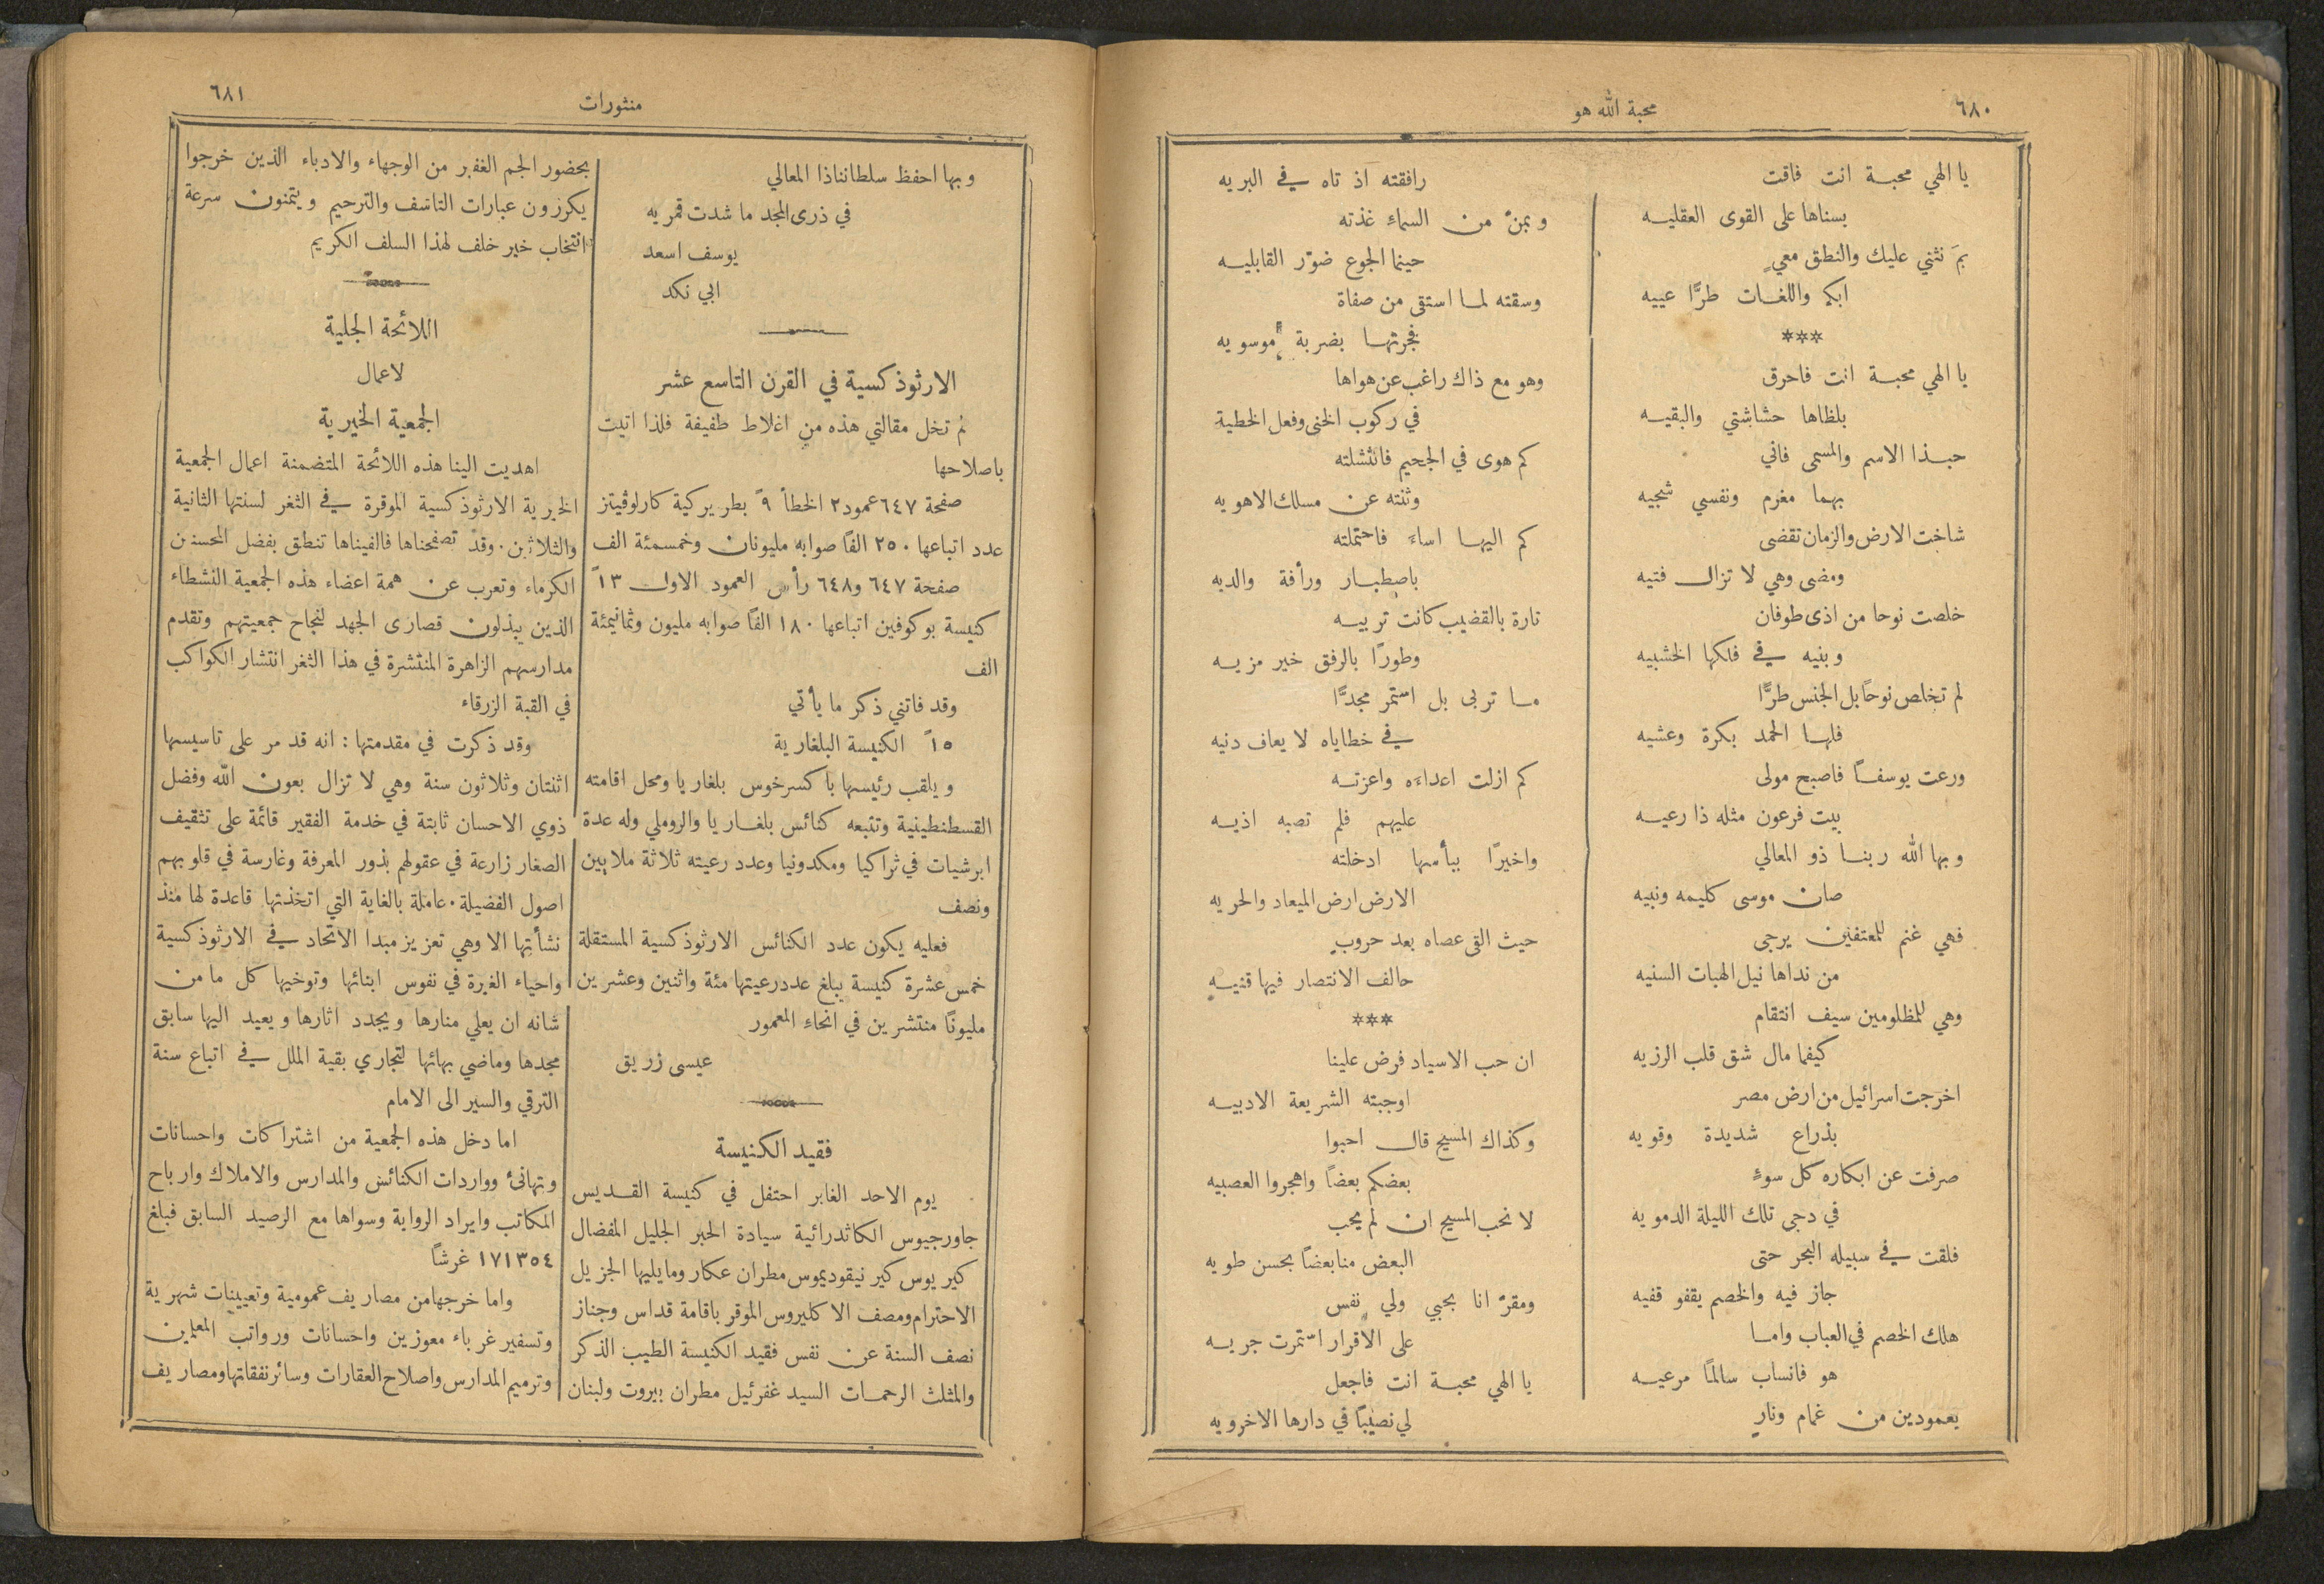 ٦٨٠
محبة الله هو
يا الهي محبة انت فاقت
بسناها على القوى العقليه
بمَ نثني عليك والنطق معيٍ
ابكم واللغات طرًّا عييه
***
يا الهي محبة انت فاحرق
بلظاها حشاشتي والبقيه
حبذا الاسم والمسمى فاني
بهما مغرم ونفسي شجيه
شاخت الارض والزمان تقضى
ومضى وهي لا تزال فتيه
خلصت نوحا من اذى طوفان
وبنيه في فلكها الخشبيه
لم تخلص نوحًا بل الجنس طرًّا
فلها الحمد بكرة وعشيه
ورعت يوسفًا فاصبح مولى
بيت فرعون مثله ذا رعيه
وبها الله ربنا ذو المعالي
صان موسى كليمه ونبيه
فهي غنم للمعتفين يرجى
من نداها نيل الهبات السنيه
وهي للمظلومين سيف انتقام
كيفما مال شق قلب الرزيه
اخرجت اسرائيل من ارض مصر
بذراع شديدة وقويه
صرفت عن ابكاره كل سوءٍ
في دجى تلك الليلة الدمويه
فلقت في سبيله البحر حتى
جاز فيه والخصم يقفو قفيه
هلك الخصم في العباب واما
هو فانساب سالمًا مرعيه
بعمودين من غمام ونارٍ
رافقته اذ تاه في البريه
وبمنّ من السماء غذته
حينما الجوع ضوّر القابليه
وسقته لما استقى من صفاة
فجرتها بضربة موسويه
وهو مع ذاك راغب عن هواها
في ركوب الخنى وفعل الخطية
كم هوى في الجحيم فانتشلته
وثنته عن مسلك الاهويه
كم اليها اساءَ فاحتملته
باصطبار ورأفة والديه
تارة بالقضيب كانت تربيه
وطورًا بالرفق خير مزيه
ما تربى بل استمر مجدًّا
في خطاياه لا يعاف دنيه
كم ازلت اعداءَه واعزته
عليهم فلم تصبه اذيه
واخيرًا ببأسها ادخلته
الارض ارض الميعاد والحريه
حيث القى عصاه بعد حروبٍ
حالف الانتصار فيها قنيه
***
ان حب الاسياد فرض علينا
اوجبته الشريعة الادبيه
وكذاك المسيح قال احبوا
بعضكم بعضًا واهجروا العصبيه
لا نحب المسيح ان لم يحب
البعض منا بعضًا بحسن طويه
ومقرّ انا بحبي ولي نفس
على الاقرار استمرت جريه
يا الهي محبة انت فاجعل
لي نصيبًا في دارها الاخرويه
منثورات
٦٨١
وبها احفظ سلطاننا ذا المعالي
في ذرى المجد ما شدت قمريه
يوسف اسعد
ابي نكد
الارثوذكسية في القرن التاسع عشر
لم تخل مقالتي هذه من اغلاط طفيفة فلذا اتيت
باصلاحها
صفحة ٦٤٧ عمود ٢ الخطأ ٩ً بطريركية كارلوفيتز
عدد اتباعها ٢٥٠ الفًا صوابه مليونان وخمسمئة الف
صفحة ٦٤٧ و٦٤٨ رأس العمود الاول ١٣ً
كنيسة بوكوفين اتباعها ١٨٠ الفًا صوابه مليون وثمانيمئة
الف
وقد فاتني ذكر ما يأتي
١٥ً الكنيسة البلغارية
ويلقب رئيسها باكسرخوس بلغاريا ومحل اقامته
القسطنطينية وتتبعه كنائس بلغاريا والروملي وله عدة
ابرشيات في ثراكيا ومكدونيا وعدد رعيته ثلاثة ملايين
ونصف
فعليه يكون عدد الكنائس الارثوذكسية المستقلة
خمس عشرة كنيسة يبلغ عدد رعيتها مئة واثنين وعشرين
مليونًا منتشرين في انحاءِ المعمور
عيسى زريق
فقيد الكنيسة
يوم الاحد الغابر احتفل في كنيسة القديس
جاورجيوس الكاثدرائية سيادة الحبر الجليل المفضال
كيريوس كير نيقوديموس مطران عكار وما يليها الجزيل
الاحترام ومصف الاكليروس الموقر باقامة قداس وجناز
نصف السنة عن نفس فقيد الكنيسة الطيب الذكر
والمثلث الرحمات السيد غفرئيل مطران بيروت ولبنان
بحضور الجم الغفير من الوجهاء والادباء الذين خرجوا
يكررون عبارات التاسف والترحيم ويتمنون سرعة
انتخاب خير خلف لهذا السلف الكريم
اللائحة الجلية
لاعمال
الجمعية الخيرية
اهديت الينا هذه اللائحة المتضمنة اعمال الجمعية
الخيرية الارثوذكسية الموقرة في الثغر لسنتها الثانية
والثلاثين. وقد تصفحناها فالفيناها تنطق بفضل المحسنين
الكرماء وتعرب عن همة اعضاء هذه الجمعية النشطاء
الذين يبذلون قصارى الجهد لنجاح جمعيتهم وتقدم
مدارسهم الزاهرة المنتشرة في هذا الثغر انتشار الكواكب
في القبة الزرقاء
وقد ذكرت في مقدمتها : انه قد مر على تاسيسها
اثنتان وثلاثون سنة وهي لا تزال بعون الله وفضل
ذوي الاحسان ثابتة في خدمة الفقير قائمة على تثقيف
الصغار زارعة في عقولهم بذور المعرفة وغارسة في قلوبهم
اصول الفضيلة. عاملة بالغاية التي اتخذتها قاعدة لها منذ
نشأتها الا وهي تعزيز مبدا الاتحاد في الارثوذكسية
واحياء الغيرة في نفوس ابنائها وتوخيها كل ما من
شانه ان يعلي منارها ويجدد اثارها ويعيد اليها سابق
مجدها وماضي بهائها لتجاري بقية الملل في اتباع سنة
الترقي والسير الى الامام
اما دخل هذه الجمعية من اشتراكات واحسانات
وتهانئ وواردات الكنائس والمدارس والاملاك وارباح
المكاتب وايراد الرواية وسواها مع الرصيد السابق فبلغ
١٧١٣٥٤ غرشًا
واما خرجها من مصاريف عمومية وتعيينات شهرية
وتسفير غرباء معوزين واحسانات ورواتب المعلمين
وترميم المدارس واصلاح العقارات وسائر نفقاتها ومصاريف